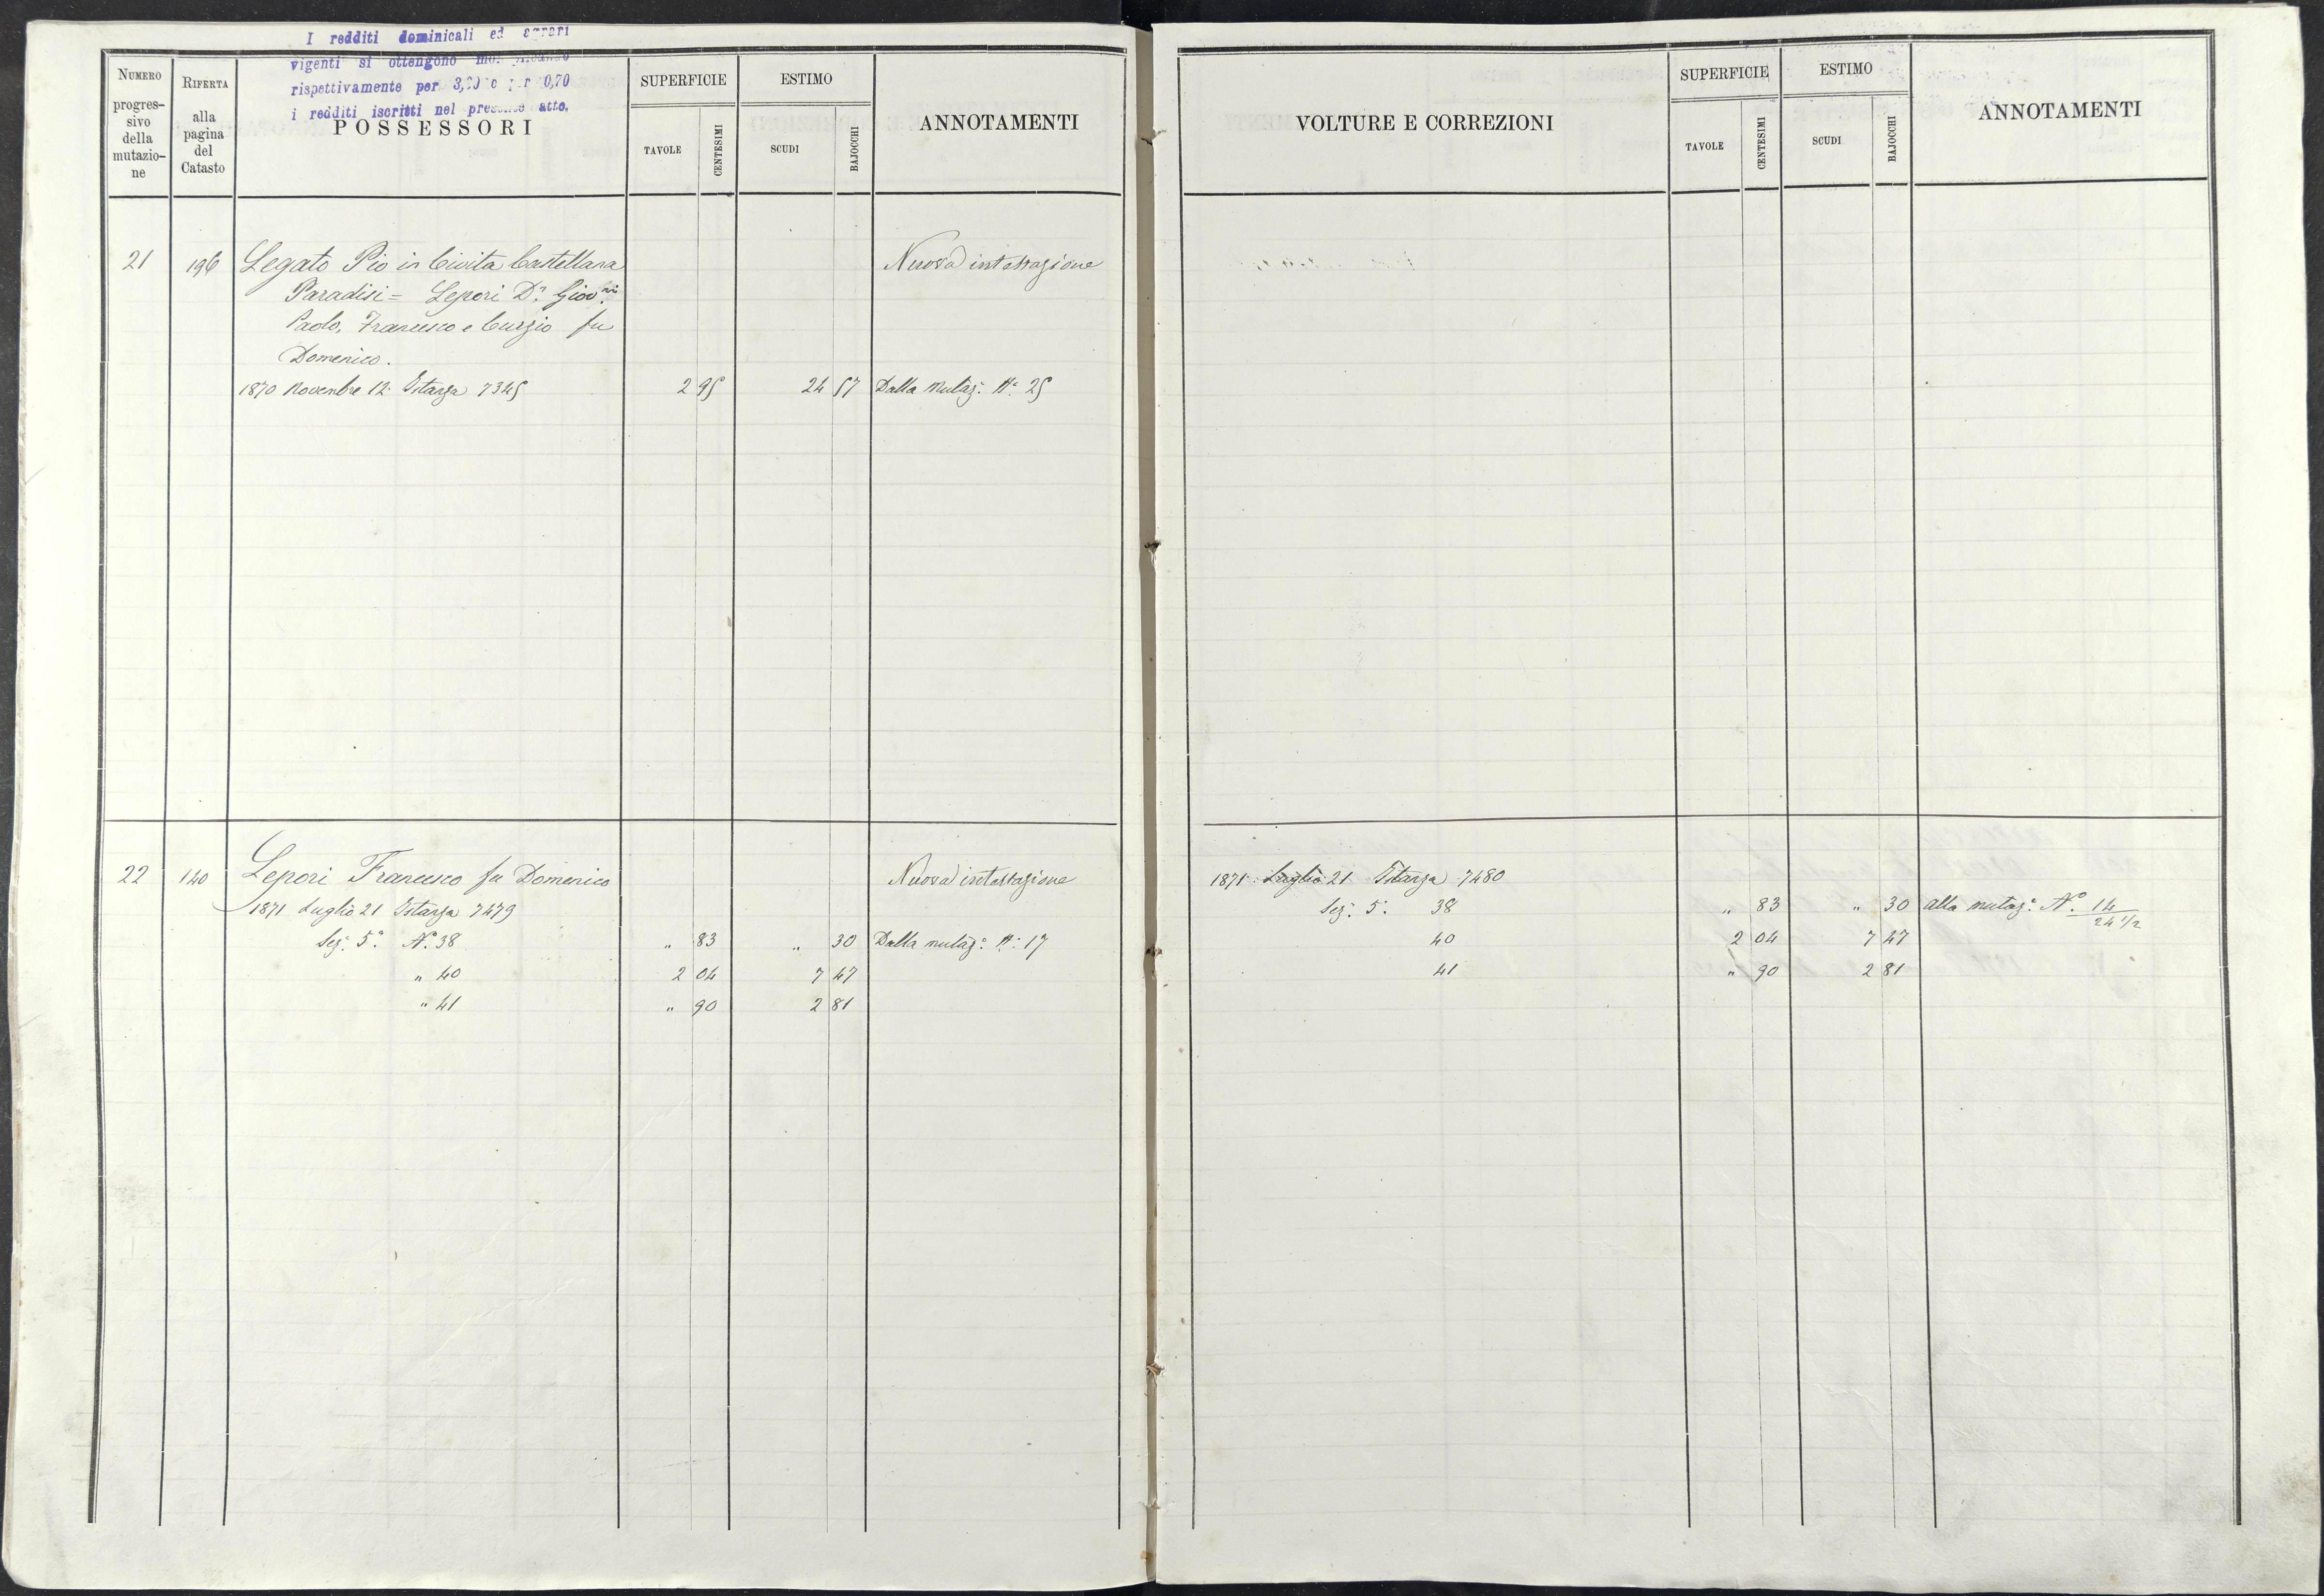 I redditi dominicali ed agrari
vigenti si ottengono
rispettivamente per 0,70
i redditi iscritti nel presente atto.
NUMERO progres-sivo della mutazio-ne
RIFERTA alla pagina del Catasto
POSSESSORI
SUPERFICIE
TAVOLE CENTESIMI
ESTIMO
SCUDI BAJOCCHI
ANNOTAMENTI
21 196 Legato Pio in Civita Castellana Nuova intestazione
Paradisi = Lepori D.n Giov.ni
Paolo, Francesco e Curzio fu
Domenico.
1870 Novembre 12. Istanza 7345 2 95 24 57 Dalla mutaz.e N.o 25
22 140 Lepori Francesco fu Domenico Nuova intestazione
1871 Luglio 21 Istanza 7479
Sez.e 5.a N.o 38 " 83 " 30 Dalla mutaz.e N.o 17
" 40 2 04 7 47
" 41 " 90 2 81
VOLTURE E CORREZIONI
SUPERFICIE
TAVOLE CENTESIMI
ESTIMO
SCUDI BAJOCCHI
ANNOTAMENTI
1871 Luglio 21 Istanza 7480
Sez.e 5.a 38 " 83 " 30 alla mutaz.e N.o 14/24 1/2
40 2 04 7 47
41 " 90 2 81